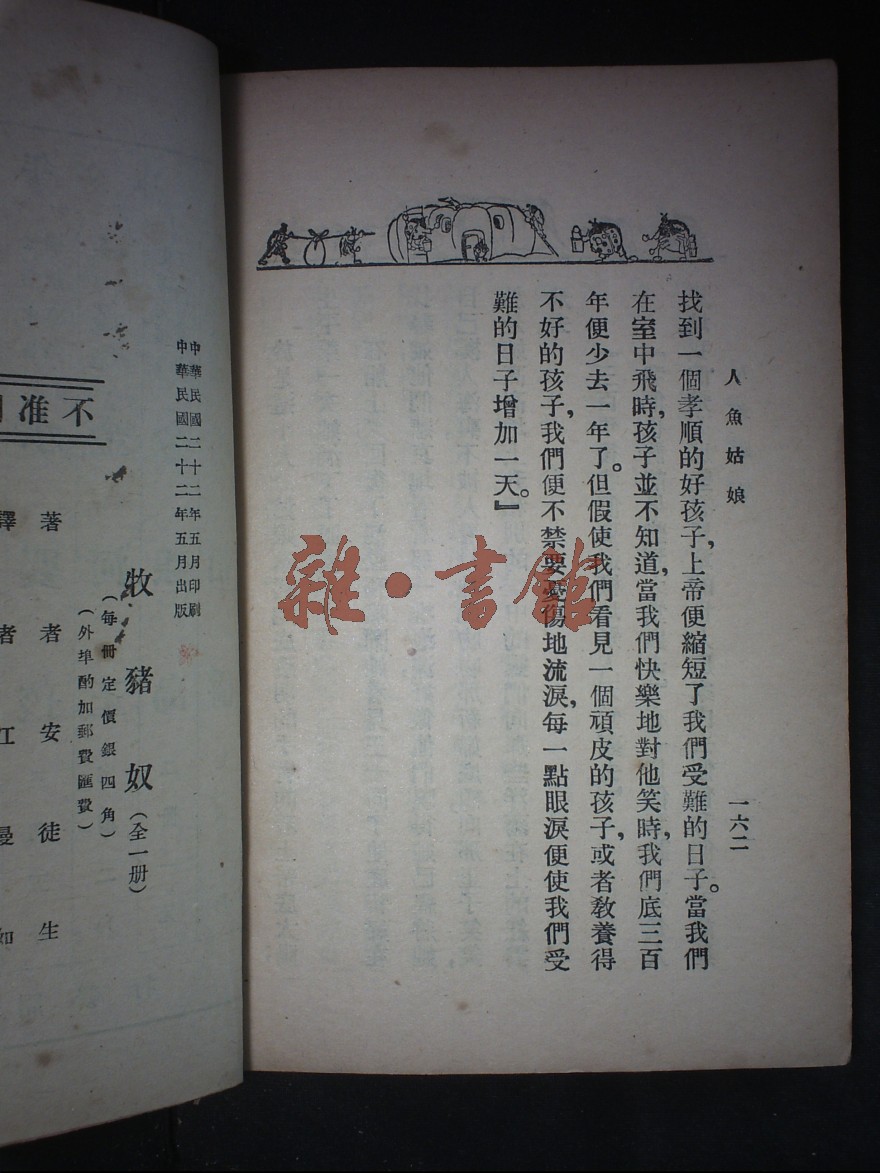 人魚姑娘
一六二
找到一個孝順的好孩子，上帝便縮短了我們受難的日子。當我們
在室中飛時，孩子並不知道，當我們快樂地對他笑時，我們底三百
年便少去一年了。但假使我們看見一個頑皮的孩子，或者教養得
不好的孩子，我們便不禁要憂傷地流淚，每一點眼淚便使我們受
難的日子增加一天。』
雜·書館
中華民國二十二年五月印刷
中華民國二十二年五月出版
牧豬奴（全一册）
（每冊定價銀四角）
（外埠酌加郵費匯費）
不准
著者安徒生
譯者江曼如